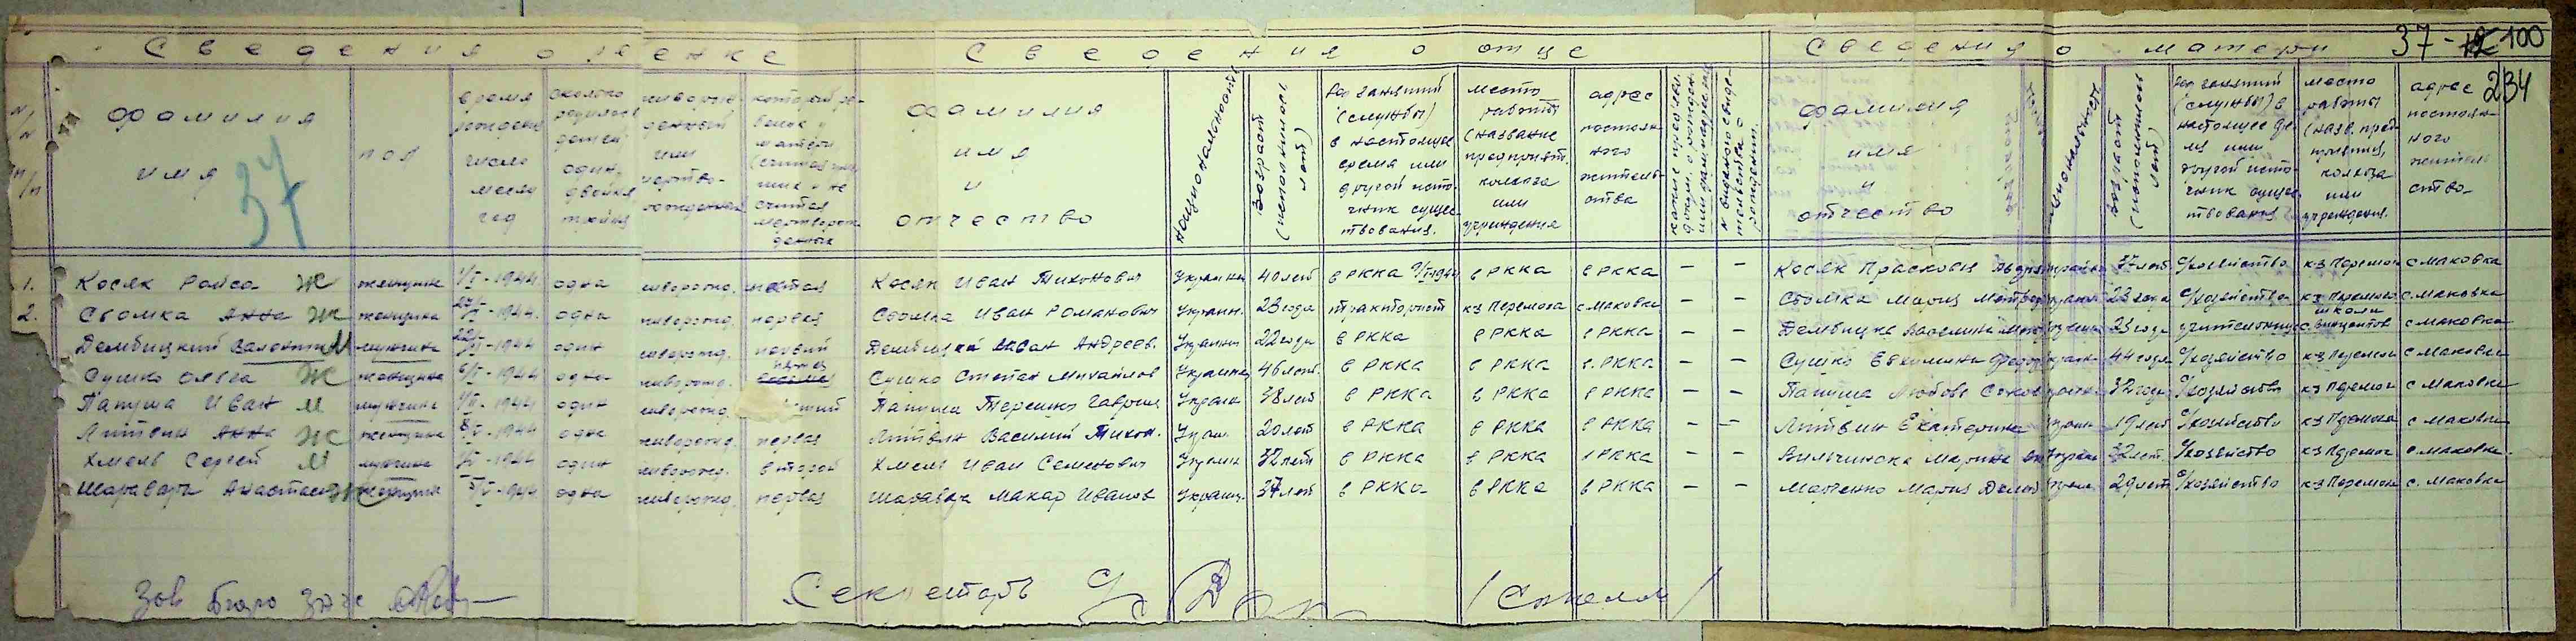 Сведения о ребенке Сведения о отце Сведения о матери 37 - 100
234
№/№ п/п фамилия имя пол время рождения число месяц год сколько родилось детей один, двойня тройня живорожденный или мертворожденный который ребенок у матери (считая умерших и не считая мертворожденных фамилия имя и отчество национальность возраст (исполнилось лет) род занятий (службы) в настоящее время или другой источник существования. место работы (название предприят. колхоза или учреждения адрес постоянного жительства фамилия имя и отчество национальность возраст (исполнилось лет) род занятий (службы) в настоящее время или другой источник существования место работы (назв. предприятия, колхоза или учреждения. адрес постоянного жительство
37
1. Косяк Раиса Ж женщина 1944 одна Косяк Иван Тихонович 40 лет в РККА в РККА в РККА - - Косяк Прасковья 37 лет с/хозяйство кз Перемога с маковка
2. Сломка Анна Ж женщина 1944. одна живорожд. первая Сломка Иван Романович Украин. 23 года тракторист кз Перемога с. маковка - - Сломка Мария 23 года с/хозяйство кз Перемога с. маковка
Дембицкий Валентин М мужчина 1944 один живорожд. первый Дембицкий Иван Андреев. 22 года в РККА в РККА в РККА - - Дембицка 23 года учительница школи с маковка
Сушко Ольга Ж женщина 1944 одна живорожд. Сушко Степан Михайлов 46 лет. в РККА в РККА в. РККА - - Сушко 44 года с/хозяйство кз Перемога с маковка
Папуша Иван М мужчина 1944 один живорожд. Папуша Терешко Гаврил 38 лет в РККА в РККА в РККА - - Папуша Любовь 32 года с/хозяйство кз Перемога с маковка
Литвин Анна Ж женщина 1944 одна живорожд. первая Литвин Василий Тихон. 20 лет в РККА в РККА в РККА - - Литвин Екатерина 19 лет с/хозяйство кз Перемога с маковка
Хмель Сергей М мужчина 1944 один живорожд. второй Хмель Иван Семенович 32 лет в РККА в РККА в РККА - - Вильчинска Марина 32 лет. с/хозяйство кз Перемога с. маковка.
Шаравара Анастасия Ж женщина 1944 одна живорожд. первая Шаравара Макар Иванов 37 лет в РККА в РККА в РККА - - Мария 29 лет с/хозяйство кз Перемога с. маковка
Зав бюро загс Секретарь с/с